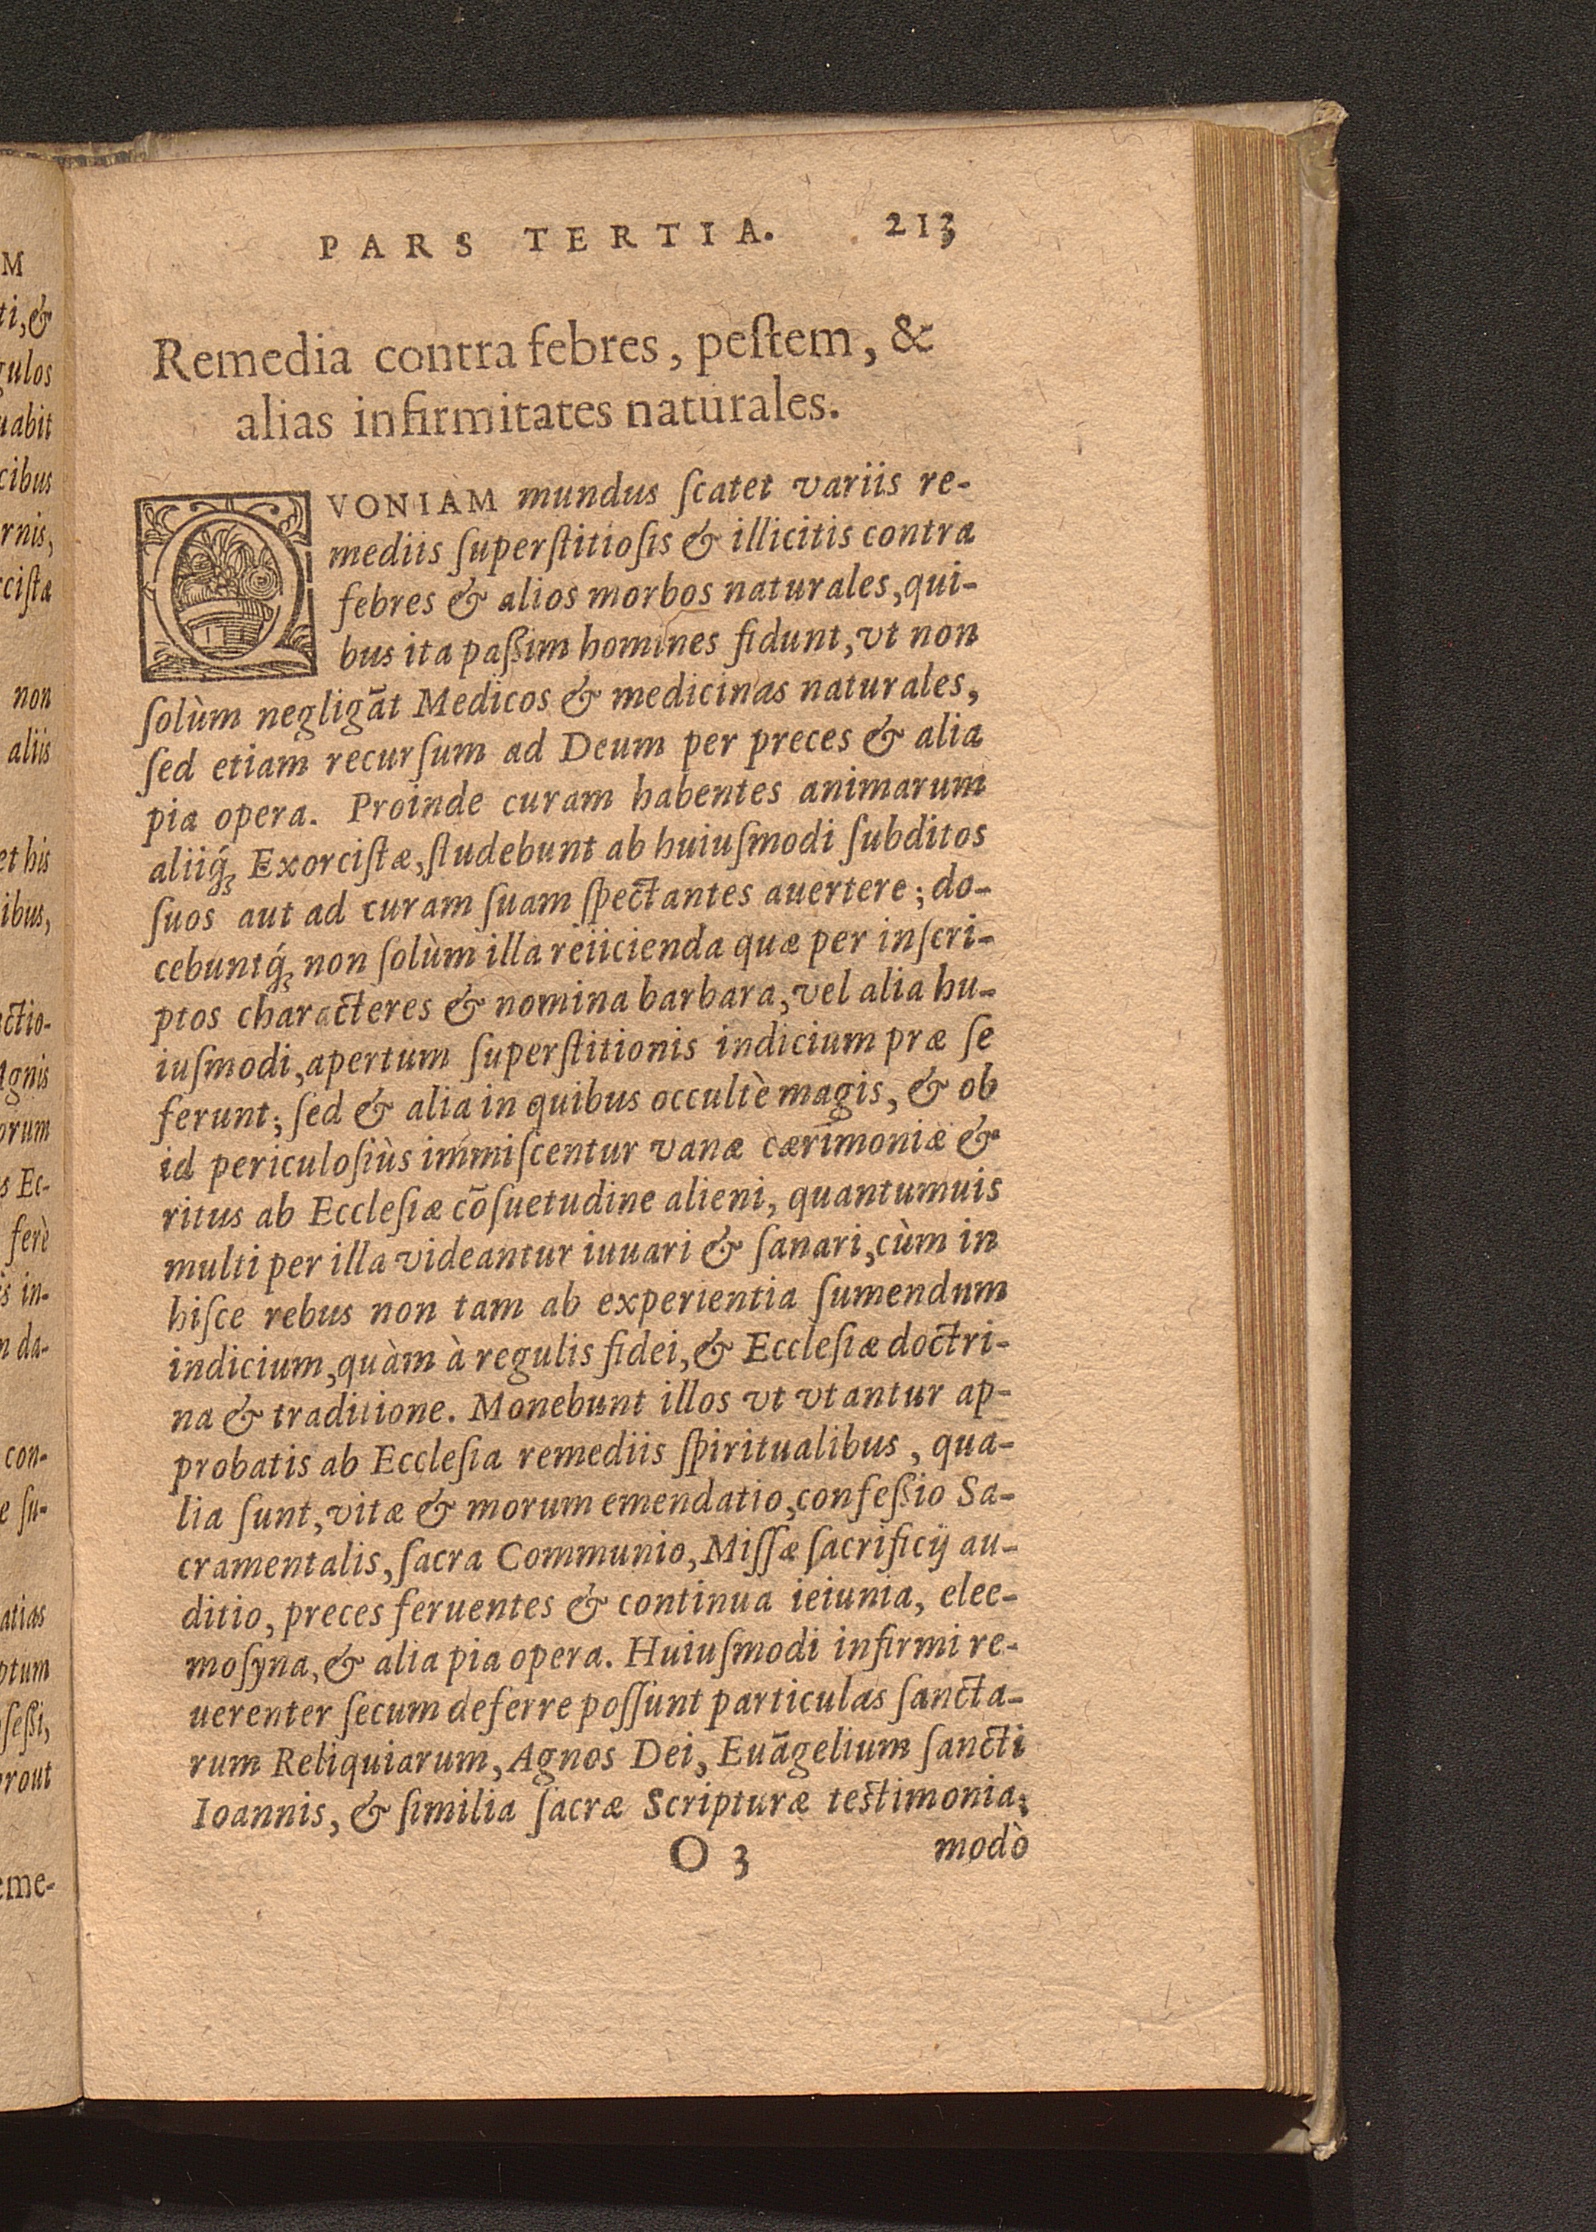 PARS TERTIA. 213
Remedia contra febres, peſtem, &
alias infirmitates naturales.
QVONIAM mundus ſcatet variis re-
mediis ſuperſtitioſis & illicitis contra
febres & alios morbos naturales, qui-
bus ita paßim homines fidunt, vt non
ſolùm negligãt Medicos & medicinas naturales,
ſed etiam recurſum ad Deum per preces & alia
pia opera. Proinde curam habentes animarum
aliiq́ꝫ Exorciſtæ, ſtudebunt ab huiuſmodi ſubditos
ſuos aut ad curam ſuam ſpectantes auertere; do-
cebuntq́ꝫ non ſolùm illa reiicienda quæ per inſcri-
ptos characteres & nomina barbara, vel alia hu-
iuſmodi, apertum ſuperſtitionis indicium præ ſe
ferunt; ſed & alia in quibus occultè magis, & ob
id periculoſiùs immiſcentur vanæ cærimoniæ &
ritus ab Eccleſiæ cõſuetudine alieni, quantumuis
multi per illa videantur iuuari & ſanari, cùm in
hiſce rebus non tam ab experientia ſumendum
indicium, quàm à regulis fidei, & Eccleſiæ doctri-
na & traditione. Monebunt illos vt vtantur ap-
probatis ab Eccleſia remediis ſpiritualibus, qua-
lia ſunt, vitæ & morum emendatio, confeßio Sa-
cramentalis, ſacra Communio, Miſſæ ſacrificij au-
ditio, preces feruentes & continua ieiunia, elee-
moſyna, & alia pia opera. Huiuſmodi infirmi re-
uerenter ſecum deferre poſſunt particulas ſancta-
rum Reliquiarum, Agnos Dei, Euãgelium ſancti
Ioannis, & ſimilia ſacræ Scripturæ testimonia;
O 3 modò